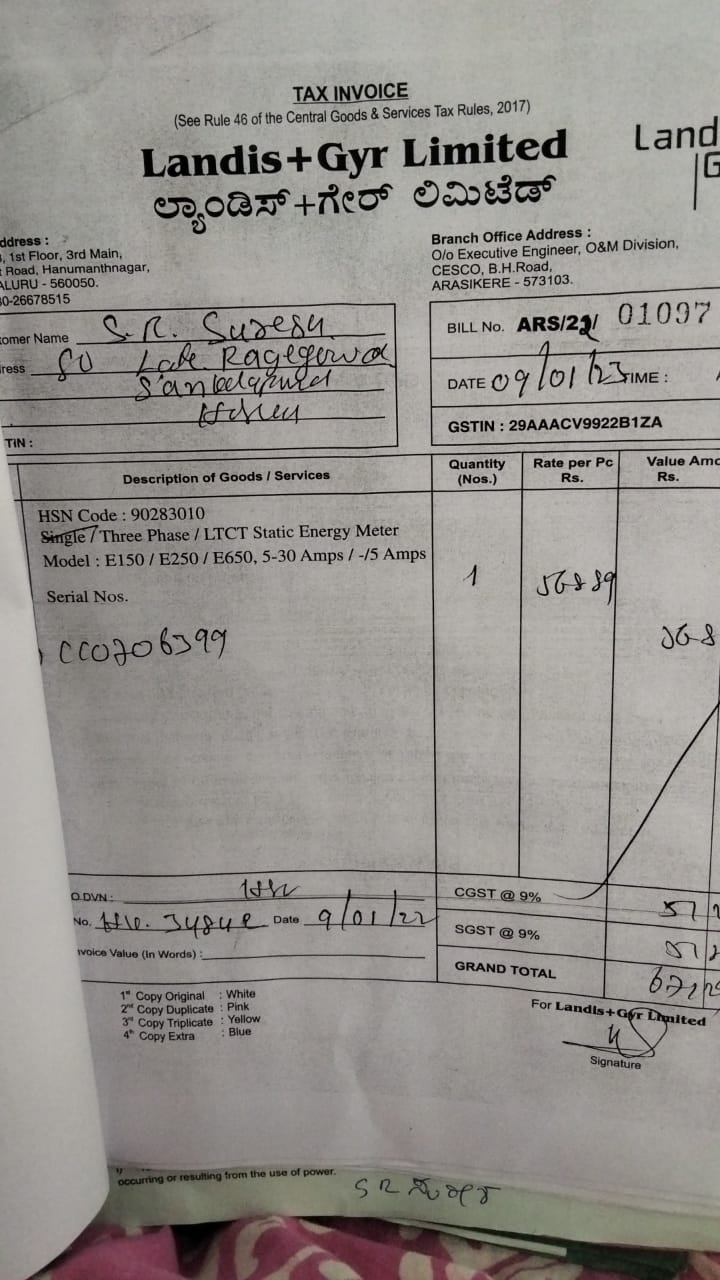 TAX INVOICE
(See Rule 46 of the Central Goods & Services Tax Rules, 2017)
Landis+Gyr Limited
Land
G
ಲ್ಯಾಂಡಿಸ್+ಗೇರ್ ಲಿಮಿಟೆಡ್
ddress :
, 1st Floor, 3rd Main,
Road, Hanumanthnagar,
ALURU - 560050.
0-26678515
Branch Office Address :
O/o Executive Engineer, O&M Division,
CESCO, B.H.Road,
ARASIKERE - 573103.
omer Name S.R. Suresh
ress Late
TIN :
BILL No. ARS/22/ 01097
DATE 09/01/23 TIME :
GSTIN : 29AAACV9922B1ZA
Description of Goods / Services
Quantity (Nos.)
Rate per Pc Rs.
Value Amo Rs.
HSN Code : 90283010
Single / Three Phase / LTCT Static Energy Meter
Model : E150 / E250 / E650, 5-30 Amps / -/5 Amps
1
Serial Nos.
CC0706399
O DVN :
No. Date 9/01/22
nvoice Value (In Words) :
CGST @ 9%
SGST @ 9%
GRAND TOTAL
1st Copy Original : White
2nd Copy Duplicate : Pink
3rd Copy Triplicate : Yellow
4th Copy Extra : Blue
For Landis+Gyr Limited
Signature
occurring or resulting from the use of power.
S R